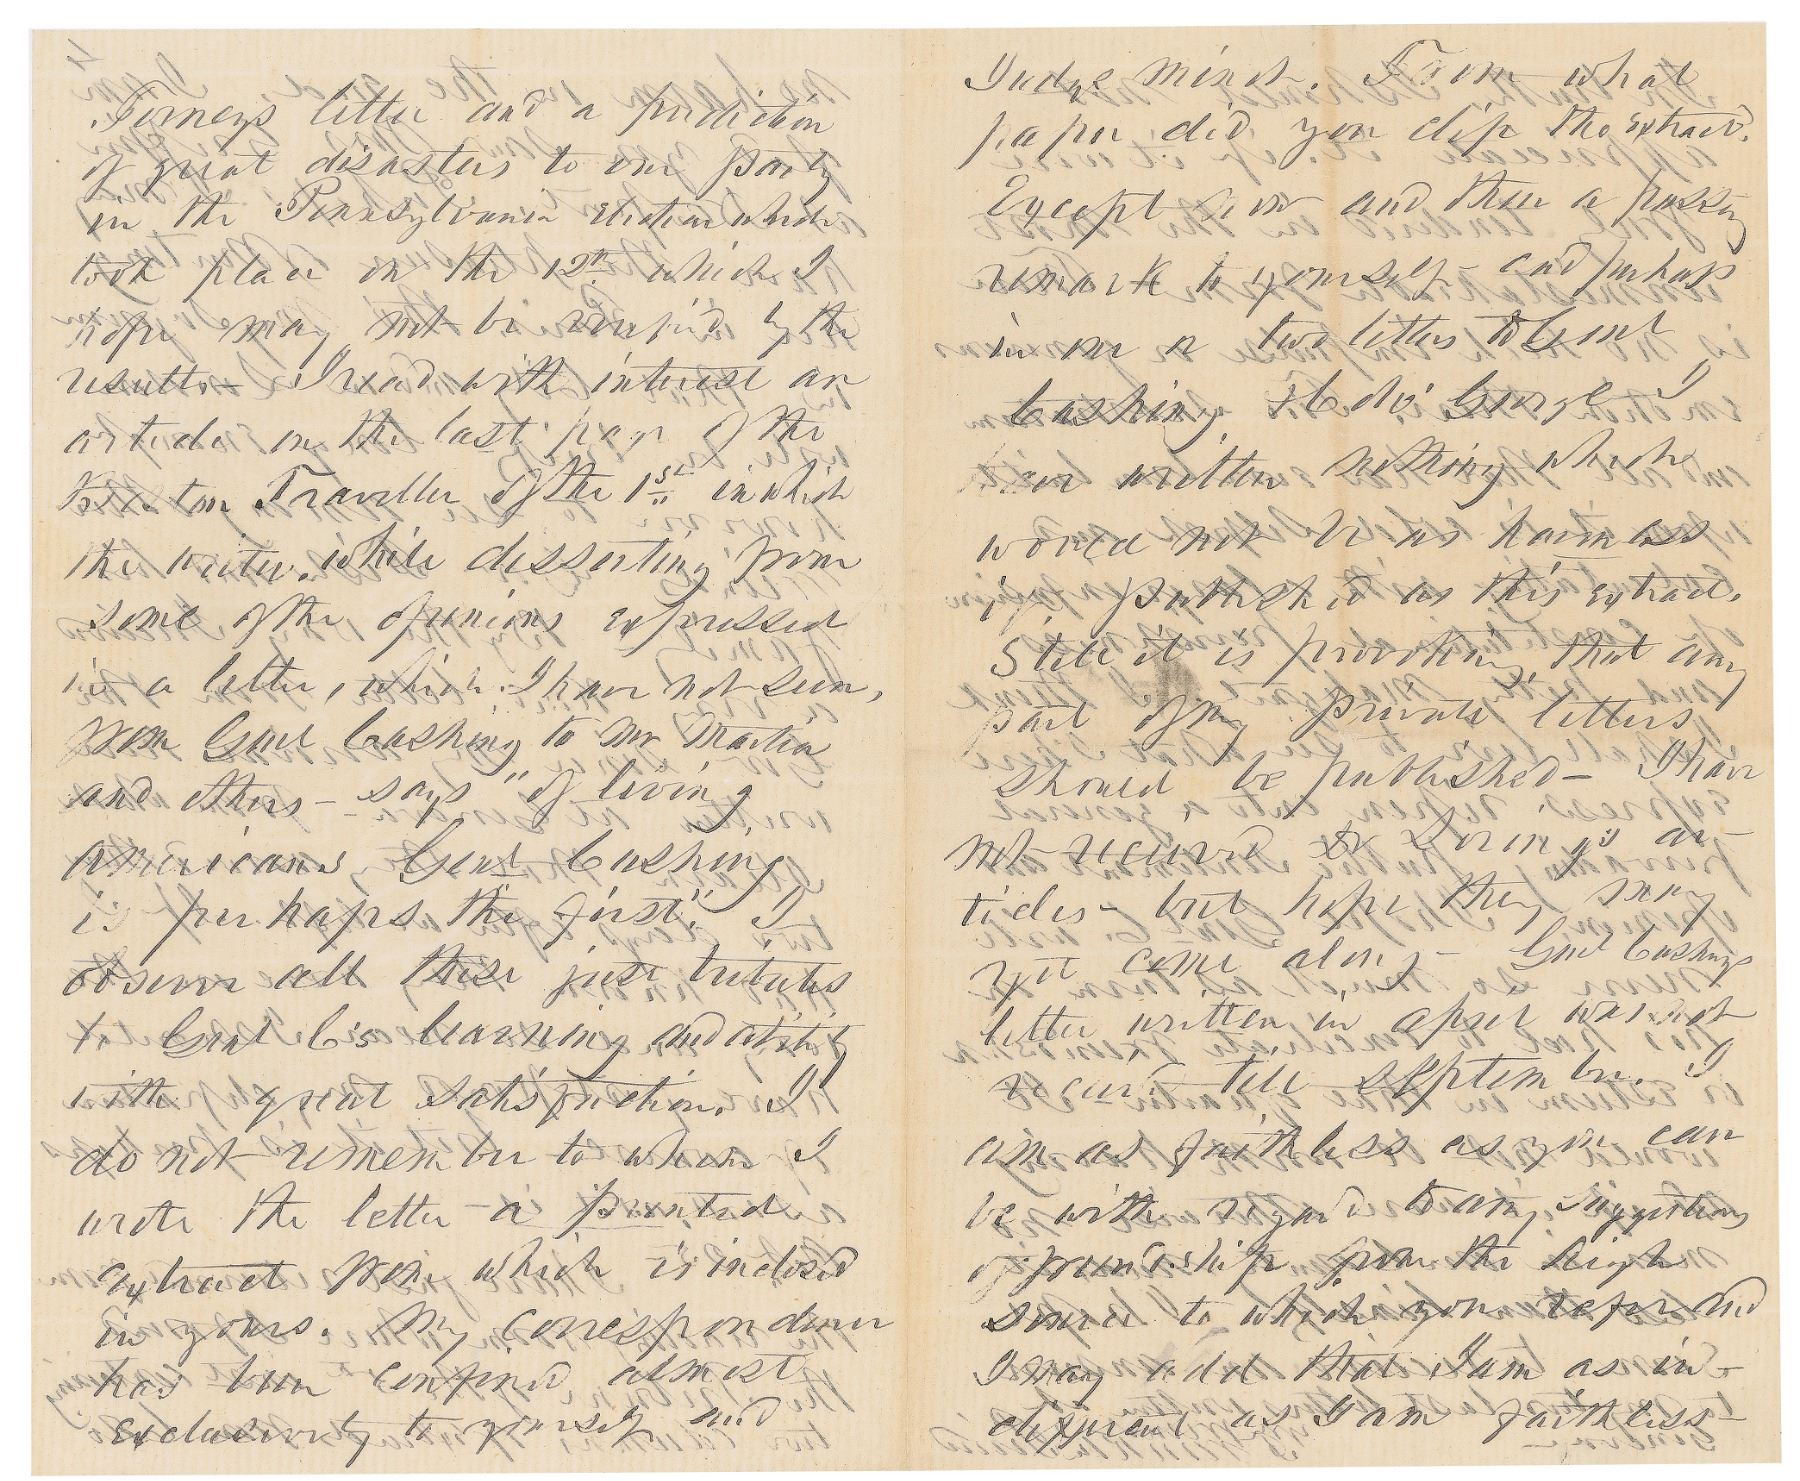 4
Forneys letter and a prediction
of great disasters to our party
in the Pennsylvania Election which
took place on the 12th. which I
hope may not be verified by the
results— I read with interest an
article on the last page of the
Boston Traveller of the 1st. in which
the writer, while dissenting from
some of the opinions expressed
in a letter, which I have not seen,
from Genl Cushing to Mr Martin
and others— says "of living
Americans Genl Cushing
is perhaps the first". I
observe all these just tributes
to Genl C's learning and ability
with great satisfaction. I
do not remember to whom I
wrote the letter— a printed
extract from which is inclosed
in yours. My correspondence
has been confined almost
exclusively to yourself and
Judge Minot. From what
paper did you clip the extract.
Except here and there a passing
remark to yourself— and perhaps
in one or two letters to Genl
Cushing & George I
have written nothing which
would not be as harmless
if published as this extract.
Still it is provoking that any
part of my private letters
should be published— I have
not received Dr Loring's ar-
ticles— but hope they may
yet come along— Genl Cushings
letter written in april was not
recvd. till September. I
am as faithless as you can
be with regard to any suggestions
of friendship from the high
source to which you refer and
I may add that I am as in-
different as I am faithless—